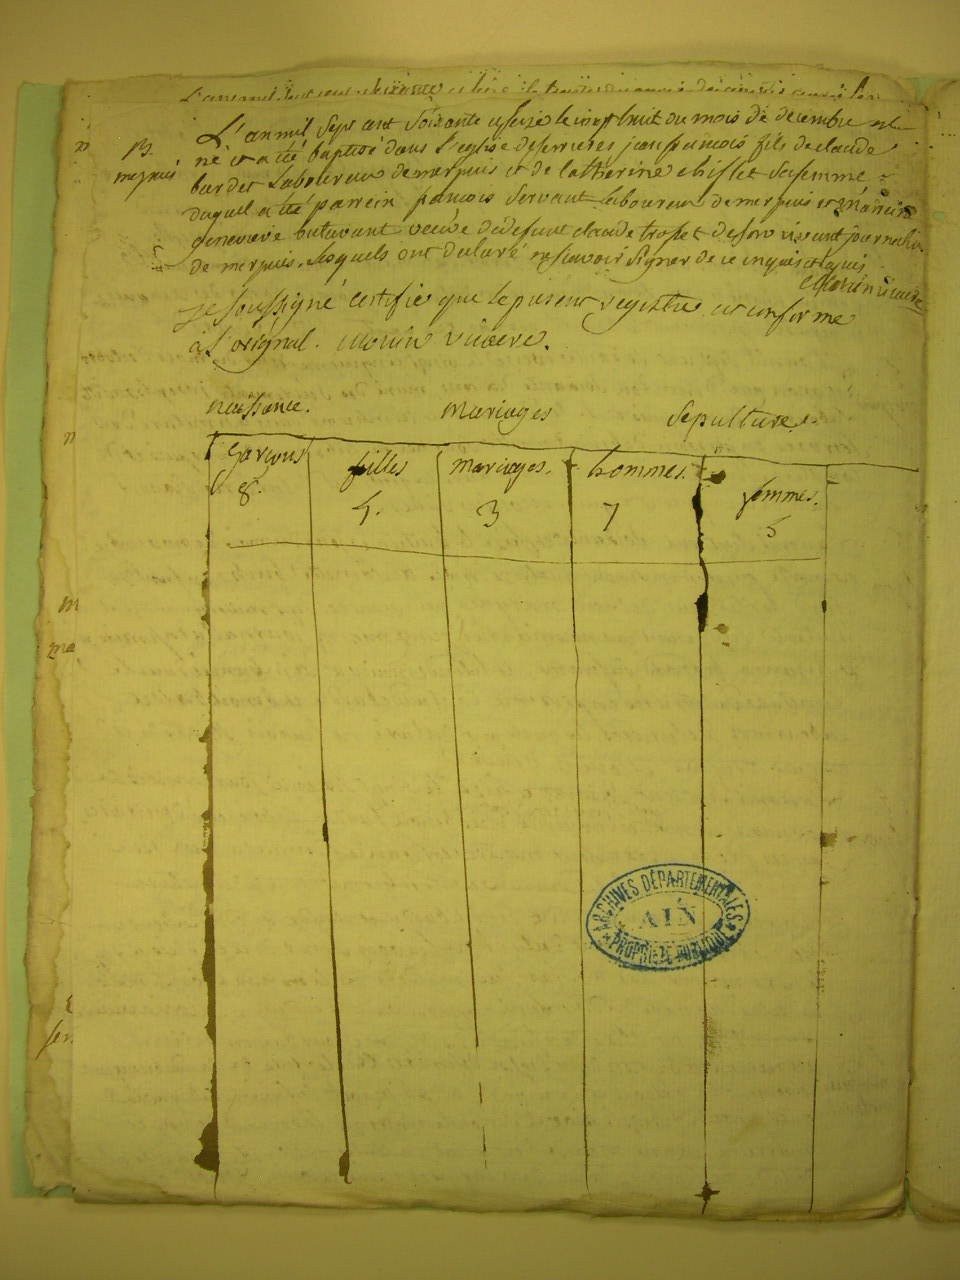 L'an mil sept cent soixante et seize le vingt huit du mois de decembre est
B.
merpuis
né et a été baptisé dans l'eglise de serrieres jean françois fils de claude
bardet Laboureur de merpuis et de Catherine chiflet sa femme
duquel a été parrein françois servant laboureur de merpuis et mareine
genevieve butavant veuve de defunt claude trosset de son vivant journalier
de merpuis. lesquels ont declaré ne savoir signer de ce enquis et requis
morin vicaire
je soussigné certifie que le present registre est conforme
à l'original. morin vicaire.
naissance. mariages sepulture.
garçons filles mariages. hommes. femmes.
8. 4. 3 7 5
ARCHIVES DÉPARTEMENTALES
AIN
PROPRIÉTÉ PUBLIQUE